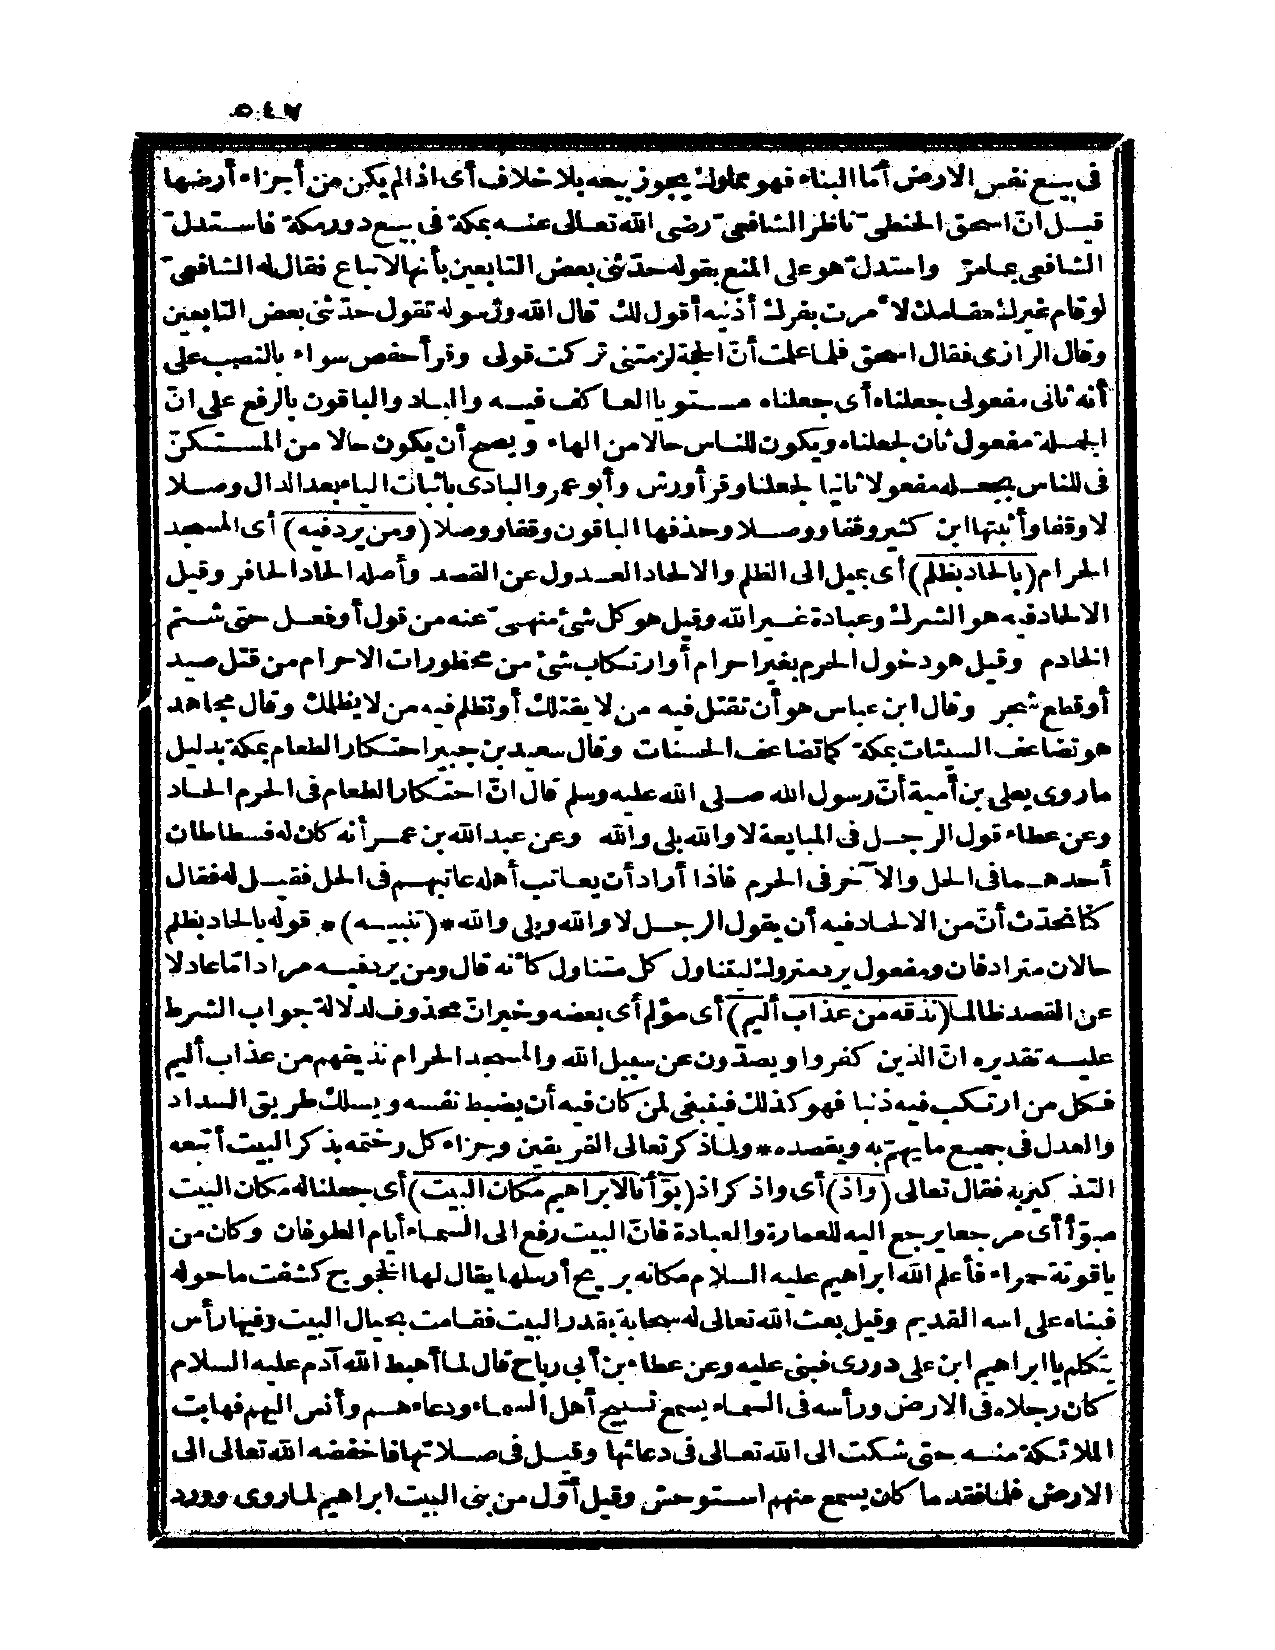 ٥٤٧
فى بيع نفس الارض أمّا البناء فهو مملوك يجوز بيعه بلا خلاف أى اذا لم يكن من أجزاء أرضها
قيل انّ اسحق الحنظلىّ ناظر الشافعىّ رضى الله تعالى عنه بمكة فى بيع دور مكة فاستدلّ
الشافعى بما مرّ واستدلّ هو على المنع بقوله حدّثنى بعض التابعين بأنها لا تباع فقال له الشافعىّ
لو قام غيرك مقامك لا مرت بفرك أذنيه أقول لك قال الله ورسوله تقول حدّثنى بعض التابعين
وقال الرازى فقال اسحق فلما علمت أنّ الحجة لزمتنى تركت قولى وقرأ حفص سواء بالنصب على
أنه ثانى مفعولى جعلناه أى جعلناه مستويا العاكف فيه والباد والباقون بالرفع على انّ
الجملة مفعول ثان لجعلناه ويكون للناس حالا من الهاء ويصح أن يكون حالا من المستكنّ
فى للناس بجعله مفعولا ثانيا لجعلنا وقرأ ورش وأبو عمرو البادى باثبات الياء بعد الدال وصلا
لا وقفا وأثبتها ابن كثير وقفا ووصلا وحذفها الباقون وقفا ووصلا (ومن يرد فيه) أى المسجد
الحرام (بالحاد بظلم) أى بميل الى الظلم والالحاد العدول عن القصد وأصله الحاد الحافر وقيل
الالحاد فيه هو الشرك وعبادة غير الله وقيل هو كل شئ منهىّ عنه من قول أو فعل حتى شتم
الخادم وقيل هو دخول الحرم بغير احرام أو ارتكاب شئ من محظورات الاحرام من قتل صيد
أو قطع شجر وقال ابن عباس هو أن تقتل فيه من لا يقتلك أو تظلم فيه من لا يظلمك وقال مجاهد
هو تضاعف السيئات بمكة كما تضاعف الحسنات وقال سعيد بن جبير احتكار الطعام بمكة بدليل
ما روى يعلى بن أمية أنّ رسول الله صلى الله عليه وسلم قال انّ احتكار الطعام فى الحرم الحاد
وعن عطاء قول الرجل فى المبايعة لا والله بلى والله وعن عبد الله بن عمر أنه كان له فسطاطان
أحدهما فى الحل والآخر فى الحرم فاذا أراد أن يعاتب أهله عاتبهم فى الحل فقيل له فقال
كنا نحدّث أنّ من الالحاد فيه أن يقول الرجل لا والله وبلى والله * (تنبيه) * قوله بالحاد بظلم
حالان مترادفان ومفعول يرد متروك ليتناول كل متناول كأنه قال ومن يرد فيه مرادا مّا عادلا
عن القصد ظالما (نذقه من عذاب أليم) أى مؤلم أى بعضه وخبر انّ محذوف لدلالة جواب الشرط
عليه تقديره انّ الذين كفروا ويصدّون عن سبيل الله والمسجد الحرام نذيقهم من عذاب أليم
فكل من ارتكب فيه ذنبا فهو كذلك فينبغى لمن كان فيه أن يضبط نفسه ويسلك طريق السداد
والعدل فى جميع ما يهمّ به ويقصده * ولما ذكر تعالى الفريقين وجزاء كل وختمه بذكر البيت أتبعه
التذكير به فقال تعالى (واذ) أى واذكر اذ (بوّأنا لابراهيم مكان البيت) أى جعلنا له مكان البيت
مبوّأ أى مرجعا يرجع اليه للعمارة والعبادة فانّ البيت رفع الى السماء أيام الطوفان وكان من
ياقوتة حمراء فأعلم الله ابراهيم عليه السلام مكانه بريح أرسلها يقال لها الخجوج كشفت ما حوله
فبناه على اسه القديم وقيل بعث الله تعالى له سحابة بقدر البيت فقامت بحيال البيت وفيها رأس
يتكلم يا ابراهيم ابن على دورى فبنى عليه وعن عطاء بن أبى رباح قال لما أهبط الله آدم عليه السلام
كان رجلاه فى الارض ورأسه فى السماء يسمع تسبيح أهل السماء ودعاءهم وأنس اليهم فهابت
الملائكة منه حتى شكت الى الله تعالى فى دعائها وقيل فى صلاتها فاخفضه الله تعالى الى
الارض فلما فقد ما كان يسمع منهم استوحش وقيل أوّل من بنى البيت ابراهيم لما روى وورد